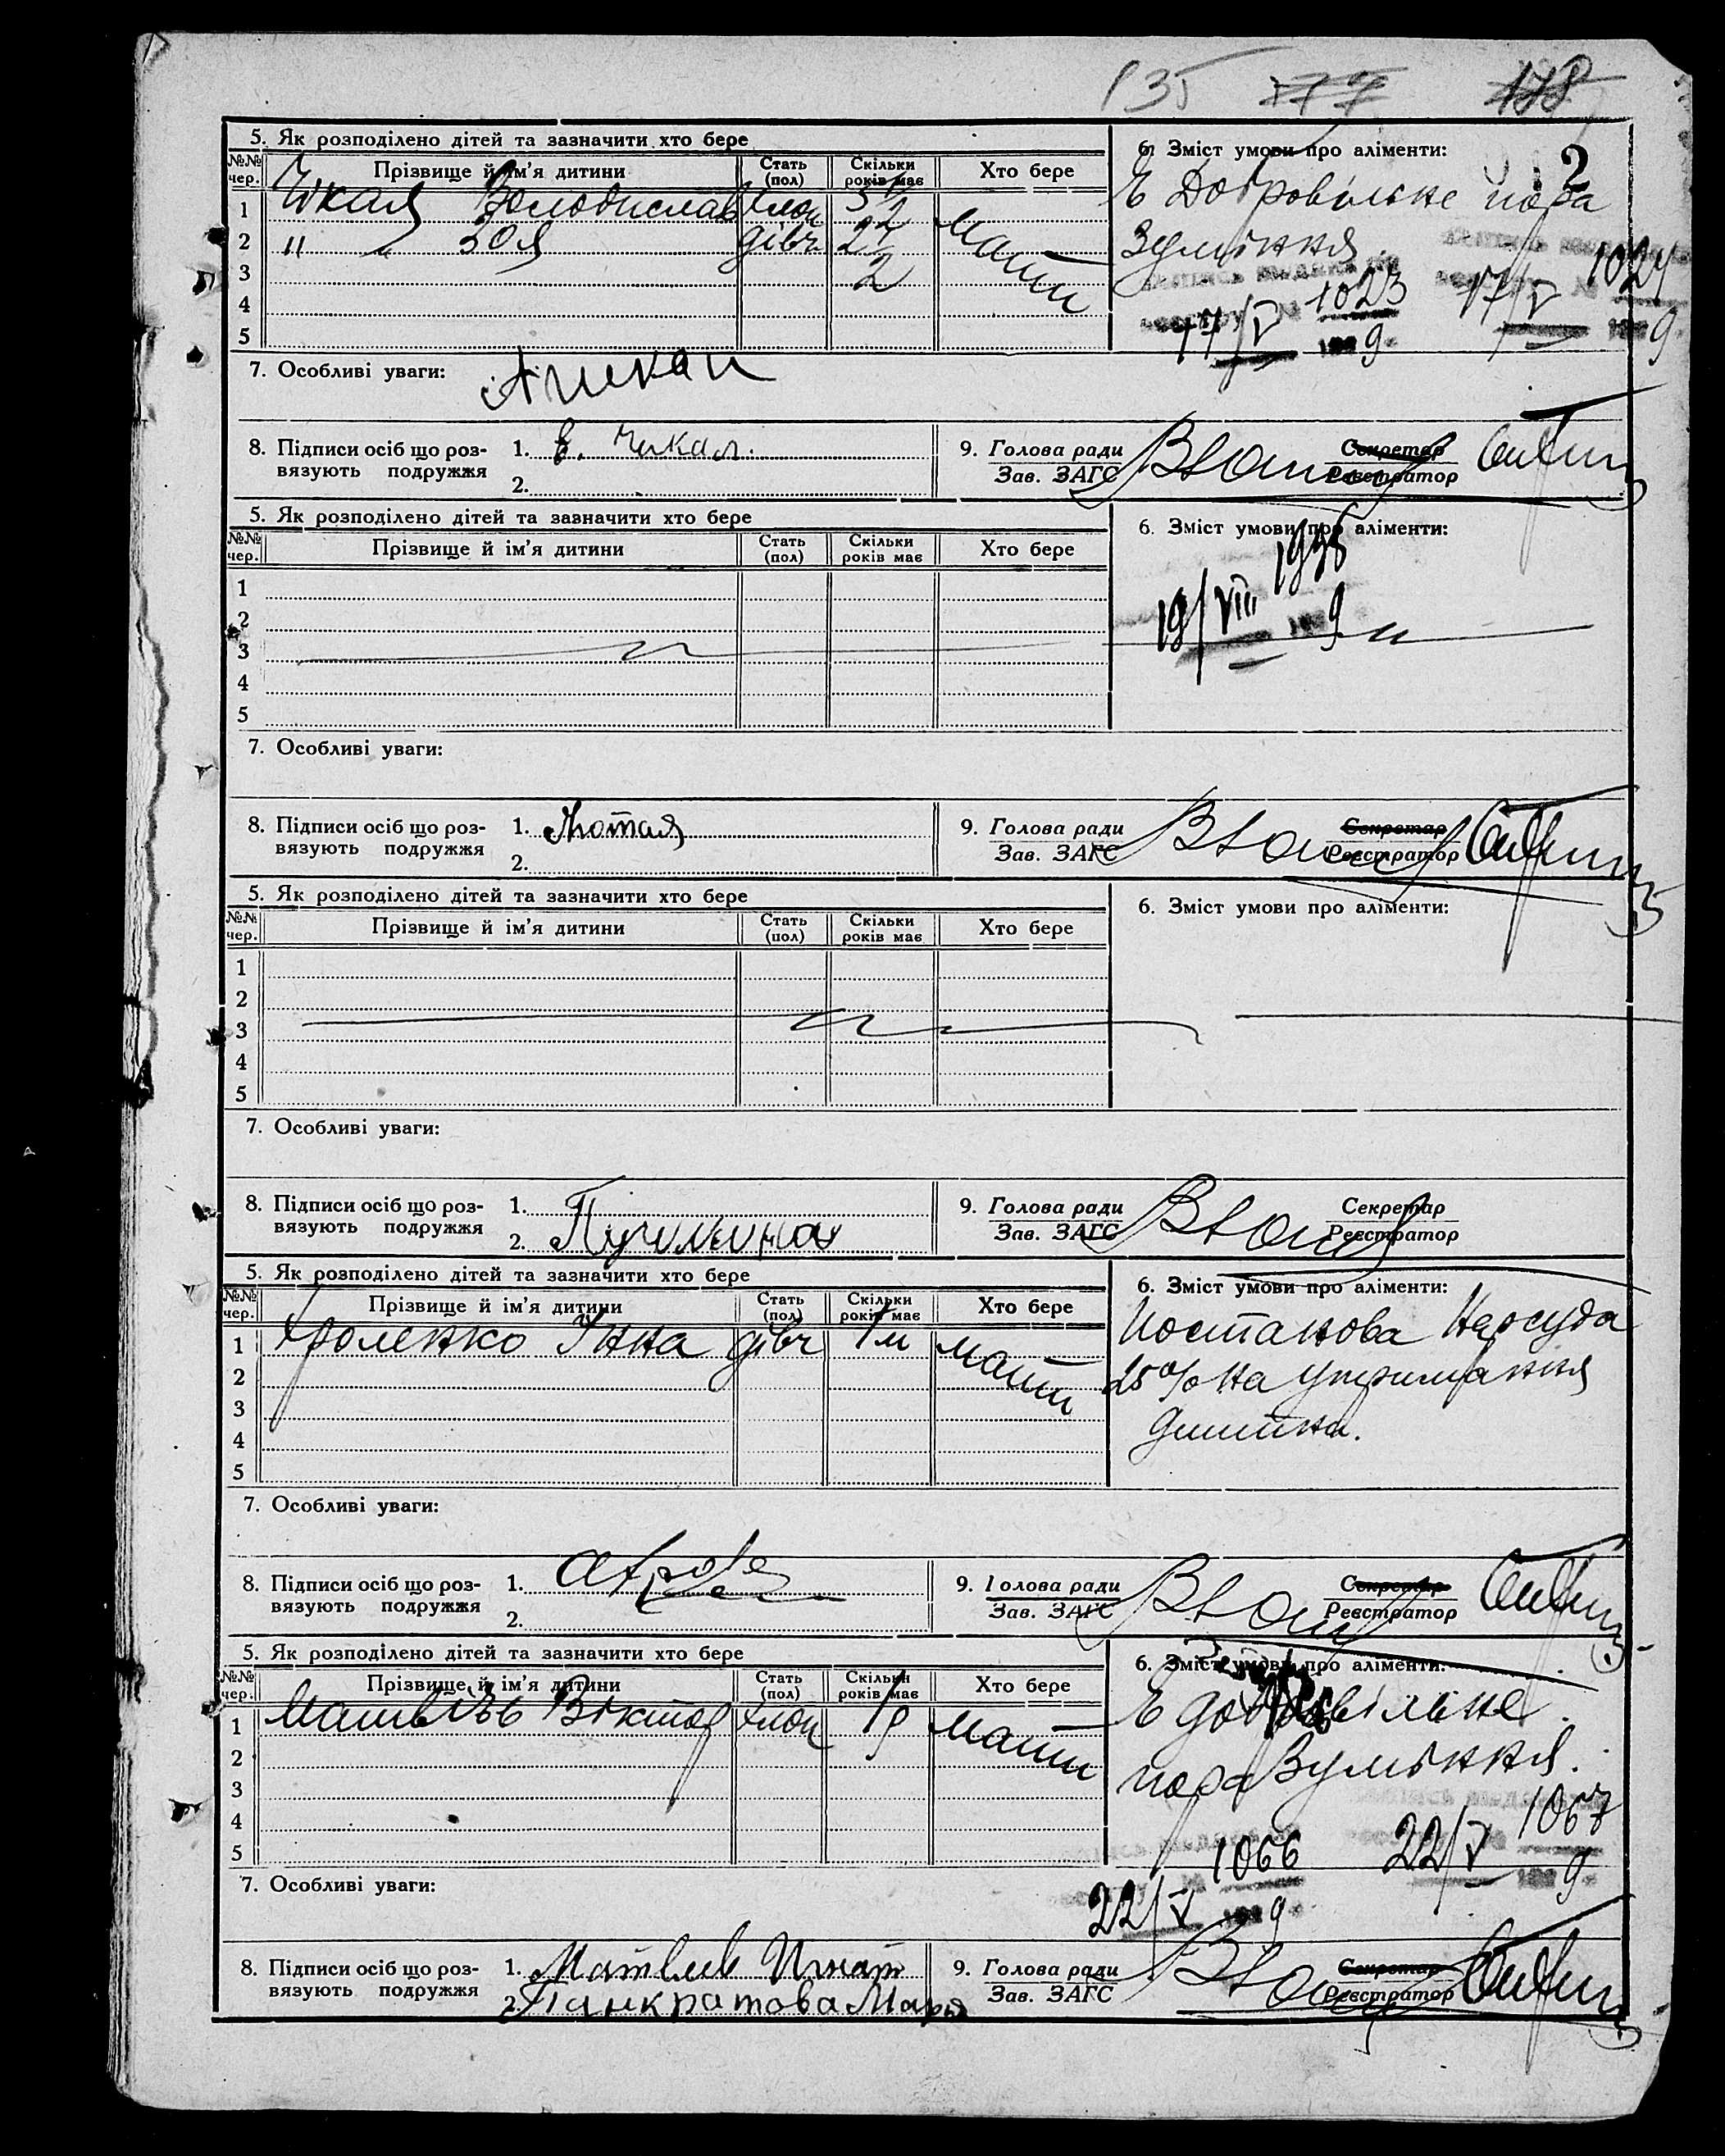 135 177 178
5. Як розподілено дітей та зазначити хто бере
6. Зміст умови про аліменти:
2
№№ чер. Прізвище й ім'я дитини Стать (пол) Скільки років має Хто бере
1 Чікал Володислав хлоп 5½ мати
2 " " Зоя дівч 2½
3
4
5
Є Добровільне пора
зуміння.
17/V 1023 9
17/V 1024 9
7. Особливі уваги:
8. Підписи осіб що роз-
вязують подружжя
1. Е. Чикал.
2.
9. Голова ради
Зав. ЗАГС
Секретар
Реєстратор
5. Як розподілено дітей та зазначити хто бере
6. Зміст умови про аліменти:
№№ чер. Прізвище й ім'я дитини Стать (пол) Скільки років має Хто бере
1
2
3
4
5
19/VIII 9
7. Особливі уваги:
8. Підписи осіб що роз-
вязують подружжя
1. Лютая
2.
9. Голова ради
Зав. ЗАГС
Секретар
Реєстратор
5. Як розподілено дітей та зазначити хто бере
6. Зміст умови про аліменти:
№№ чер. Прізвище й ім'я дитини Стать (пол) Скільки років має Хто бере
1
2
3
4
5
7. Особливі уваги:
8. Підписи осіб що роз-
вязують подружжя
1.
2.
9. Голова ради
Зав. ЗАГС
Секретар
Реєстратор
5. Як розподілено дітей та зазначити хто бере
6. Зміст умови про аліменти:
№№ чер. Прізвище й ім'я дитини Стать (пол) Скільки років має Хто бере
1 Фроленко Інна дівч 1 м мати
2
3
4
5
Постанова Нарсуда
25% на утримання
дитини.
7. Особливі уваги:
8. Підписи осіб що роз-
вязують подружжя
1.
2.
9. Голова ради
Зав. ЗАГС
Секретар
Реєстратор
5. Як розподілено дітей та зазначити хто бере
6. Зміст умови про аліменти:
№№ чер. Прізвище й ім'я дитини Стать (пол) Скільки років має Хто бере
1 Матвієв Віктор хлоп 1 р мати
2
3
4
5
Є добровільне
поразуміння.
22/V 1066 9
22/V 1067 9
7. Особливі уваги:
8. Підписи осіб що роз-
вязують подружжя
1. Матвеев Игнат
2. Панкратова Марья
9. Голова ради
Зав. ЗАГС
Секретар
Реєстратор